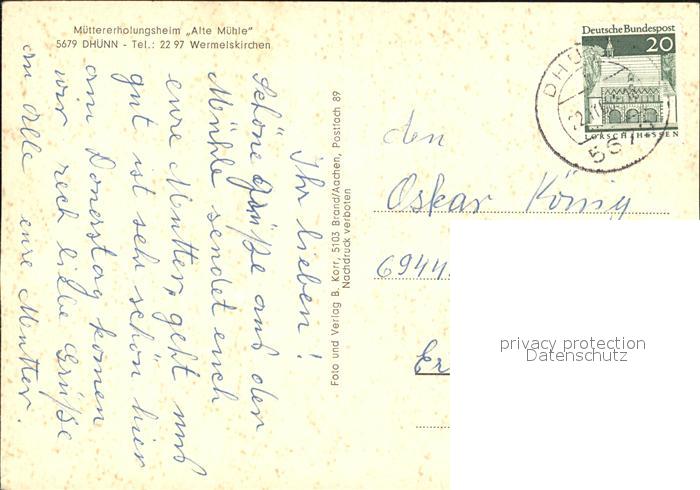 Müttererholungsheim „Alte Mühle"
5679 DHÜNN - Tel.: 22 97 Wermelskirchen
Ihr lieben!
Schöne Grüße aus der
Mühle sendet euch
eure Mutter, geht mir
gut ist sehr schön hier
am Donerstag komen
wir rech liebe Grüße
an Alle eure Mutter.
Foto und Verlag B. Korr, 5103 Brand/Aachen, Postfach 89
Nachdruck verboten
Deutsche Bundespost
20
LORSCH/HESSEN
den
Oskar König
6944
Er
privacy protection
Datenschutz